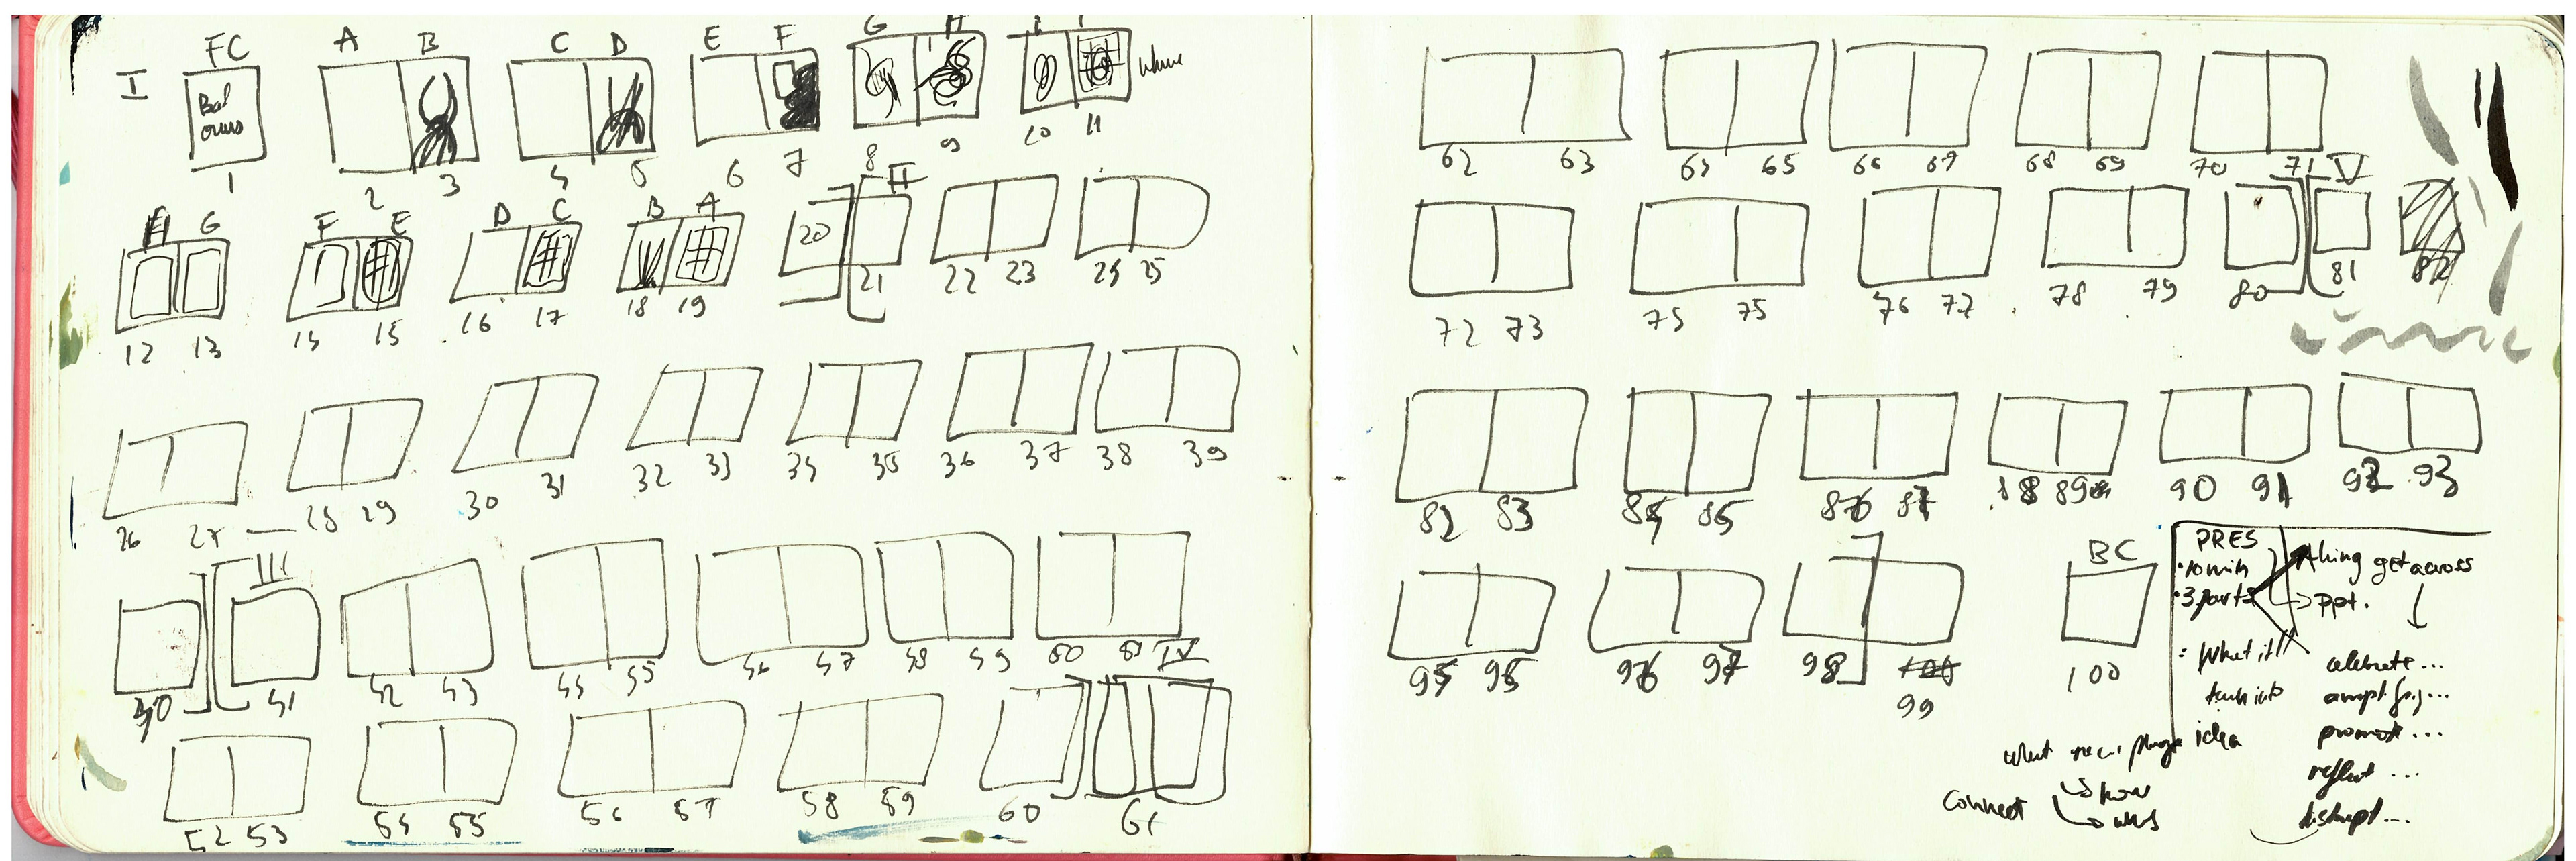 I FC A B C D E F G H I
Bal
1 2 3 4 5 6 7 8 9 10 11
H G F E D C B A II
20
12 13 14 15 16 17 18 19 21 22 23 24 25
26 27 28 29 30 31 32 33 34 35 36 37 38 39
III
40 41 42 43 44 45 46 47 48 49 50 51 IV
52 53 54 55 56 57 58 59 60 61
62 63 64 65 66 67 68 69 70 71 V
72 73 75 75 76 77 78 79 80 81 82
82 83 84 85 86 87 88 89 90 91 92 93
95 95 96 97 98 99
BC
100
PRES
·10 min
·3 parts
: What it
turn into
idea
thing get across
→ ppt.
celebrate...
amplify...
promote...
reflect ...
disrupt...
what
connect